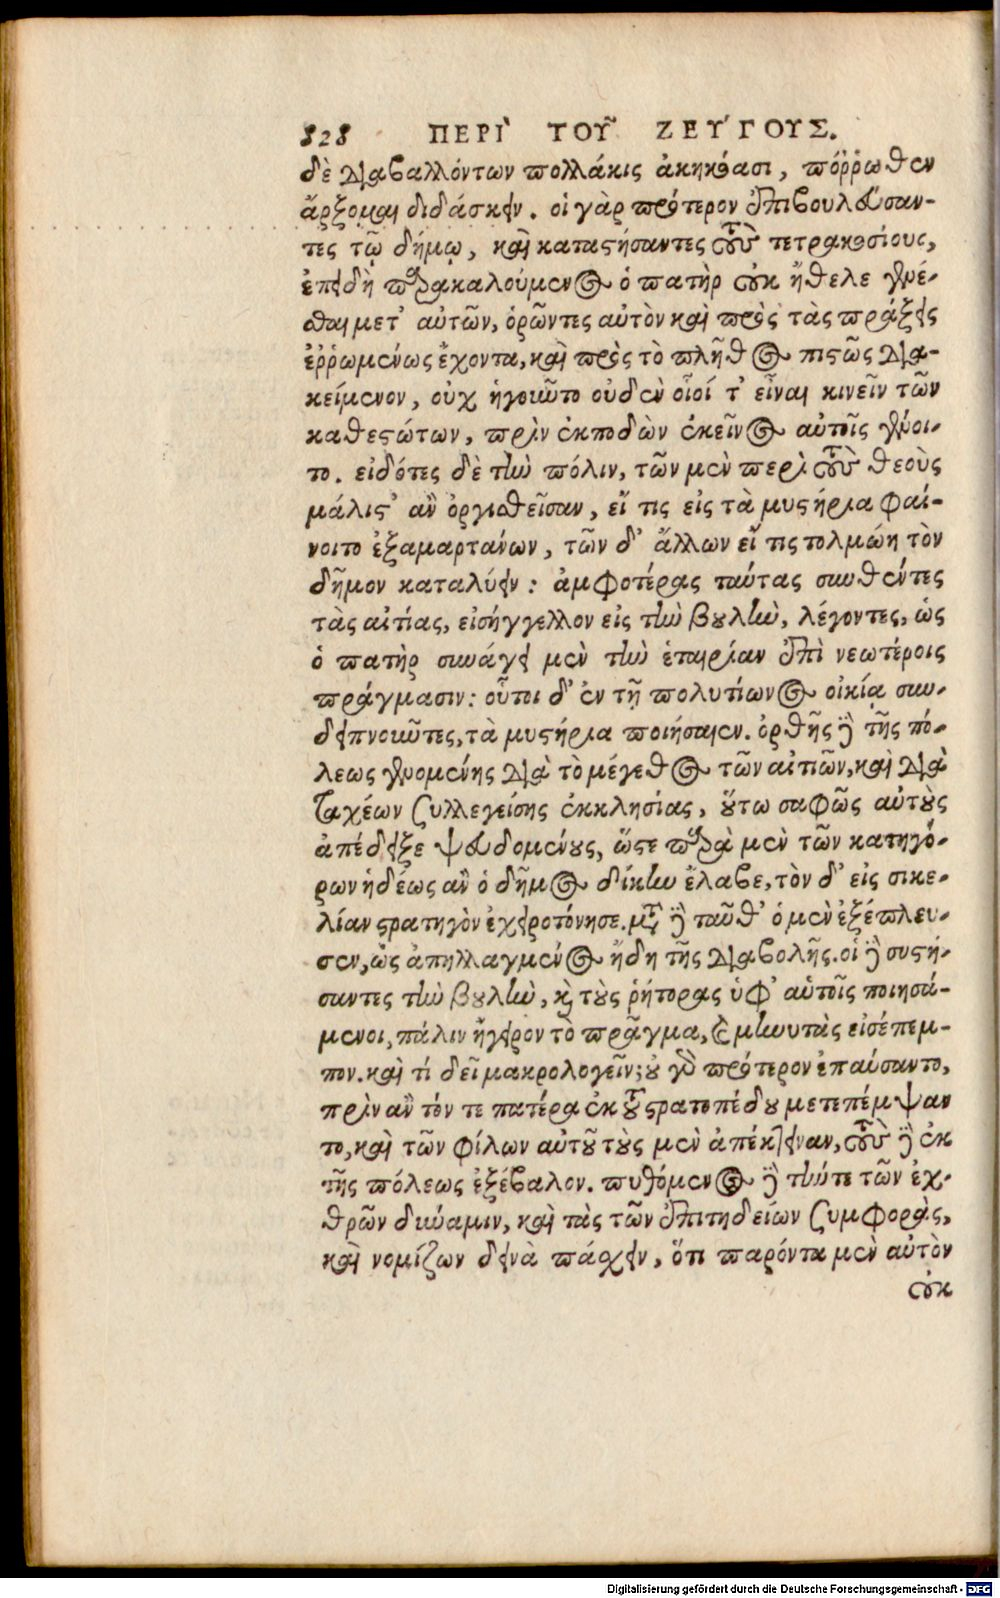 828 ΠΕΡΙ` ΤΟΥ῀ ΖΕΥ´ΓΟΥΣ.
δὲ διαβαλλόντων πολλάκις ἀκηκόασι, πόῤῥωθεν
ἄρξομαι διδάσκειν. οἱ γὰρ πρότερον ἐπιβουλεύσαν-
τες τῷ δήμῳ, καὶ καταστήσαντες τοὺς τετρακοσίους,
ἐπειδὴ παρακαλούμενος ὁ πατὴρ οὐκ ἤθελε γενέ-
σθαι μετ' αὐτῶν, ὁρῶντες αὐτὸν καὶ πρὸς τὰς πράξεις
ἐῤῥωμένως ἔχοντα, καὶ πρὸς τὸ πλῆθος πιστῶς δια-
κείμενον, οὐχ ἡγοῦντο οὐδὲν οἷοί τ' εἶναι κινεῖν τῶν
καθεστώτων, πρὶν ἐκποδὼν ἐκεῖνος αὐτοῖς γένοι-
το. εἰδότες δὲ τὴν πόλιν, τῶν μὲν περὶ τοὺς θεοὺς
μάλιστ' ἂν ὀργισθεῖσαν, εἴ τις εἰς τὰ μυστήρια φαί-
νοιτο ἐξαμαρτάνων, τῶν δ' ἄλλων εἴ τις τολμώη τὸν
δῆμον καταλύειν: ἀμφοτέρας ταύτας συνθέντες
τὰς αἰτίας, εἰσήγγελλον εἰς τὴν βουλὴν, λέγοντες, ὡς
ὁ πατὴρ συνάγει μὲν τὴν ἑταιρίαν ἐπὶ νεωτέροις
πράγμασιν: οὗτοι δ' ἐν τῇ πολυτίωνος οἰκίᾳ συν-
δειπνοῦντες, τὰ μυστήρια ποιήσαιεν. ὀρθῆς δὲ τῆς πό-
λεως γενομένης διὰ τὸ μέγεθος τῶν αἰτιῶν, καὶ διὰ
ταχέων συλλεγείσης ἐκκλησίας, οὕτω σαφῶς αὐτοὺς
ἀπέδειξε ψευδομένους, ὥστε παρὰ μὲν τῶν κατηγό-
ρων ἡδέως ἂν ὁ δῆμος δίκην ἔλαβε, τὸν δ' εἰς σικε-
λίαν στρατηγὸν ἐχειροτόνησε. μετὰ δὲ ταῦθ' ὁ μὲν ἐξέπλευ-
σεν, ὡς ἀπηλλαγμένος ἤδη τῆς διαβολῆς. οἱ δὲ συστή-
σαντες τὴν βουλὴν, καὶ τοὺς ῥήτορας ὑφ' αὑτοῖς ποιησά-
μενοι, πάλιν ἤγειρον τὸ πρᾶγμα, καὶ μηνυτὰς εἰσέπεμ-
πον. καὶ τί δεῖ μακρολογεῖν; οὐ γὰρ πρότερον ἐπαύσαντο,
πρὶν ἂν τόν τε πατέρα ἐκ τοῦ στρατοπέδου μετεπέμψαν
το, καὶ τῶν φίλων αὐτοῦ τοὺς μὲν ἀπέκτειναν, τοὺς δὲ ἐκ
τῆς πόλεως ἐξέβαλον. πυθόμενος δὲ τήν τε τῶν ἐχ-
θρῶν δύναμιν, καὶ τὰς τῶν ἐπιτηδείων συμφορὰς,
καὶ νομίζων δεινὰ πάσχειν, ὅτι παρόντα μὲν αὐτὸν
οὐκ
Digitalisierung gefördert durch die Deutsche Forschungsgemeinschaft - DFG